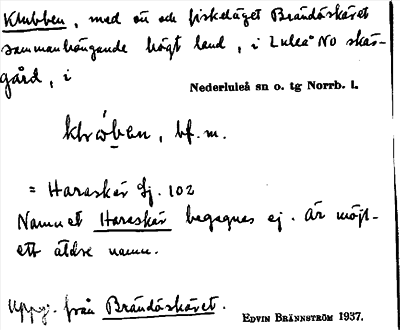 Klubben, med ön och fiskeläget Brändöskäret
sammanhängande högt land, i Luleå NO skär-
gård, i
Nederluleå sn o. tg Norrb. l.
bf. m.
= Haraskär Gj. 102
Namnet Haraskär begagnes ej. Är möjl-
ett äldre namn.
Uppg. från Brändöskäret.
EDVIN BRÄNNSTRÖM 1937.